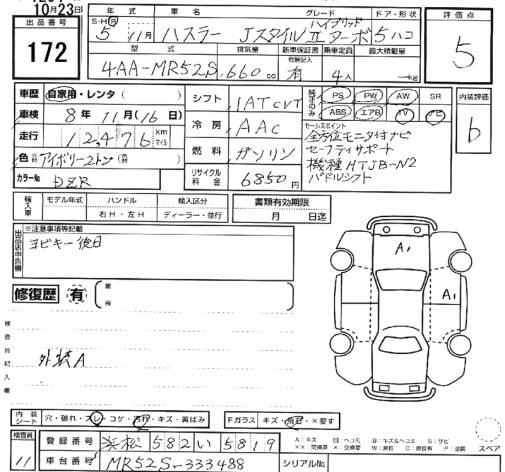 10月23日
出品番号
172
年式 車名 グレード ドア・形状
S・H・R 5年11月 ハスラー ハイブリッド JスタイルⅡターボ 5 ハコ
評価点
5
型式 排気量 新車保証書 乗車定員 最大積載量
4AA-MR52S 660cc 有無記入 有 4人 kg
車歴 自家用・レンタ
車検 8年11月(16日)
走行 12476 km マイル
色 アイボリー2トン
カラーNo DZR
シフト IAT CVT
冷房 AAC
燃料 ガソリン
リサイクル料金 6850円
純正のみ PS PW AW SR
ABS エアB TV ナビ
内装評価
b
セールスポイント
全方位モニタ付ナビ
セーフティサポート
機種HTJB-N2
パドルシフト
輸入車 モデル年式 ハンドル 輸入区分 書類有効期限
年 右H・左H ディーラー・並行 月 日迄
出品店申告欄 ※注意事項等記載
ヨビキー後日
修復歴 有 箇所
A1
A1
検査員記入欄
外装A
内装シート 穴・破れ・スレ・コゲ・汚れ・キズ・黄ばみ Fガラス キズ・無・×要す
A:キズ 凹:ヘコミ B:キズ&ヘコミ G:サビ
スペア
検査員
11
登録番号 浜松 582 い 5819
車台番号 MR52S-333488 シリアルNo.